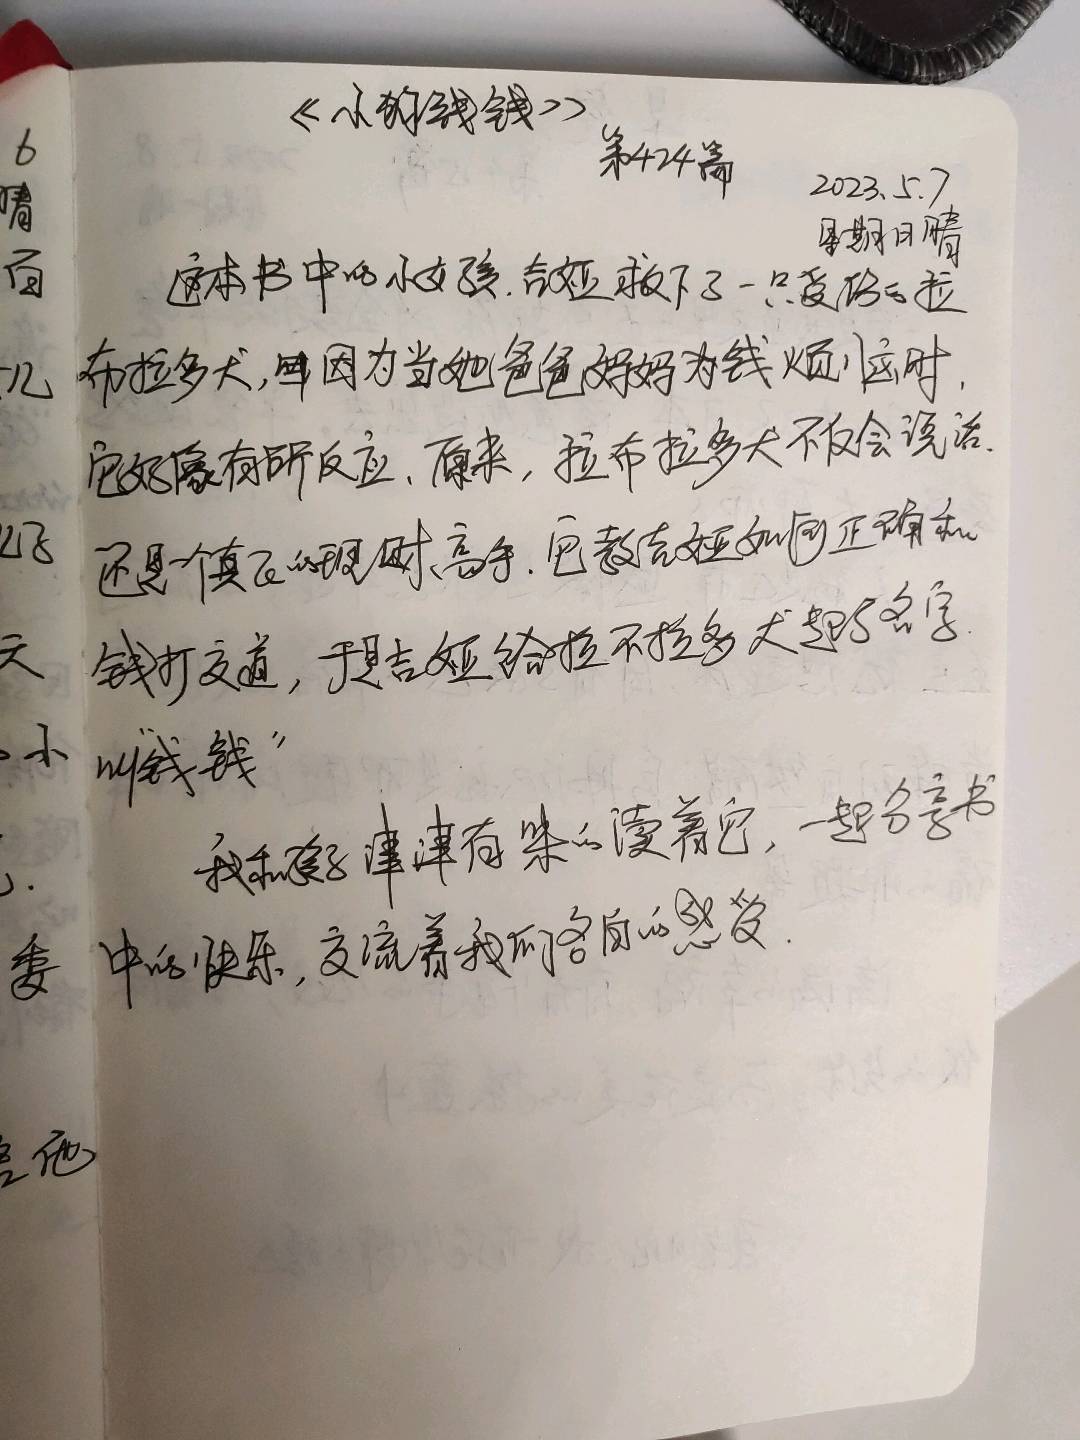 《小狗钱钱》
第424篇
2023.5.7
星期日晴
这本书中的小女孩.吉娅救下了一只受伤的拉
布拉多犬,因为当她爸爸妈妈为钱烦恼时,
它好像有所反应.原来,拉布拉多犬不仅会说话.
还是一个真正的理财高手.它教吉娅如何正确和
钱打交道,于是吉娅给拉不拉多犬起了名字.
叫"钱钱"
我和孩子津津有味的读着它,一起分享书
中的快乐,交流着我们各自的感受.
6
晴
面
几
飞
天
小
委
他